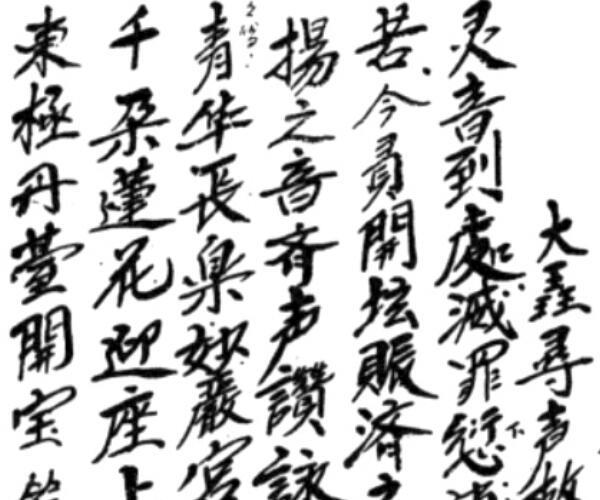 大聖尋声救
灵音到處滅罪愆
苦今員開坛賬済
揚之音斉声讚詠
青华長楽妙嚴宮
千朶蓮花迎座上
東極丹臺開宝